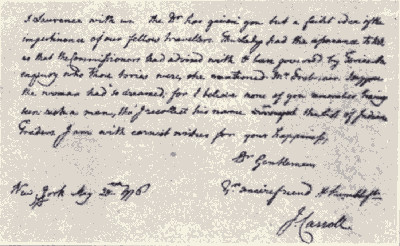 with us the Dr has given you but a faint idea of the
impertinence of our fellow travellers The Lady had the assurance to tell
us that the Commissioners had advised with & been governed by Tories
enquiry who those tories were, she mentioned Mr. I suppose
the woman had so dreamed, for I believe none of you remember having
seen such a man, tho' I recollect his name amongst the list of Indian
Traders I am with earnest wishes for your happiness,
Dr Gentlemen
New York May 2nd 1776
Yr sincere friend & humble St
J. Carroll